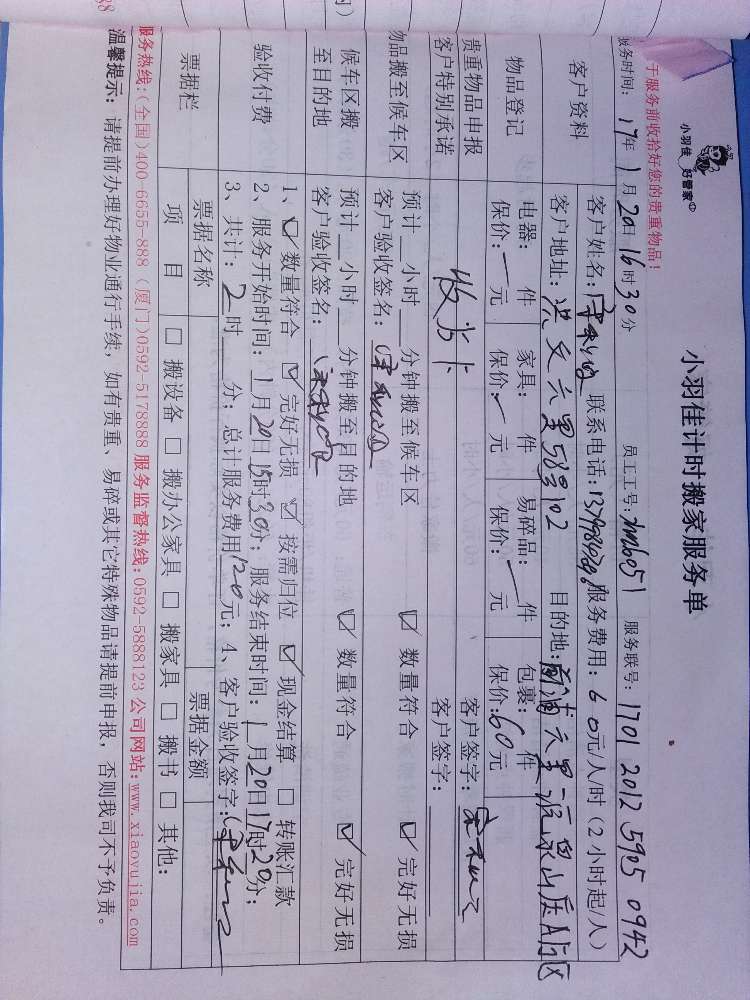 小羽佳 好管家
小羽佳计时搬家服务单
于服务前收拾好您的贵重物品！
服务时间：17年1月20日16时30分 员工工号：xm6051 服务联号：1701 2012 5905 0942
客户资料
客户姓名： 联系电话： 服务费用：60元/人/时（2小时起/人）
客户地址：洪文六里58号102 目的地：前埔六里
物品登记
电器： 件 家具： 件 易碎品： 件 包裹： 件
保价： 元 保价： 元 保价： 元 保价：60元
贵重物品申报
客户签字：
客户特别承诺
客户签字：
物品搬至候车区
预计 小时 分钟搬至候车区 ☑ 数量符合 ☑ 完好无损
客户验收签名：
候车区搬至目的地
预计 小时 分钟搬至目的地 ☑ 数量符合 ☑ 完好无损
客户验收签名：
验收付费
1、☑ 数量符合 ☑ 完好无损 ☑ 按需归位 ☑ 现金结算 □ 转账汇款
2、服务开始时间：1月20日15时30分；服务结束时间：1月20日17时20分；
3、共计：2时 分；总计服务费用120元；4、客户验收签字：
票据栏
票据名称 票据金额
项目 □ 搬设备 □ 搬办公家具 □ 搬家具 □ 搬书 □ 其他：
服务热线：(全国)400-6655-888 (厦门)0592-5178888 服务监督热线：0592-5888123 公司网站：www.xiaoyujia.com
温馨提示：请提前办理好物业通行手续，如有贵重、易碎或其它特殊物品请提前申报，否则我司不予负责。